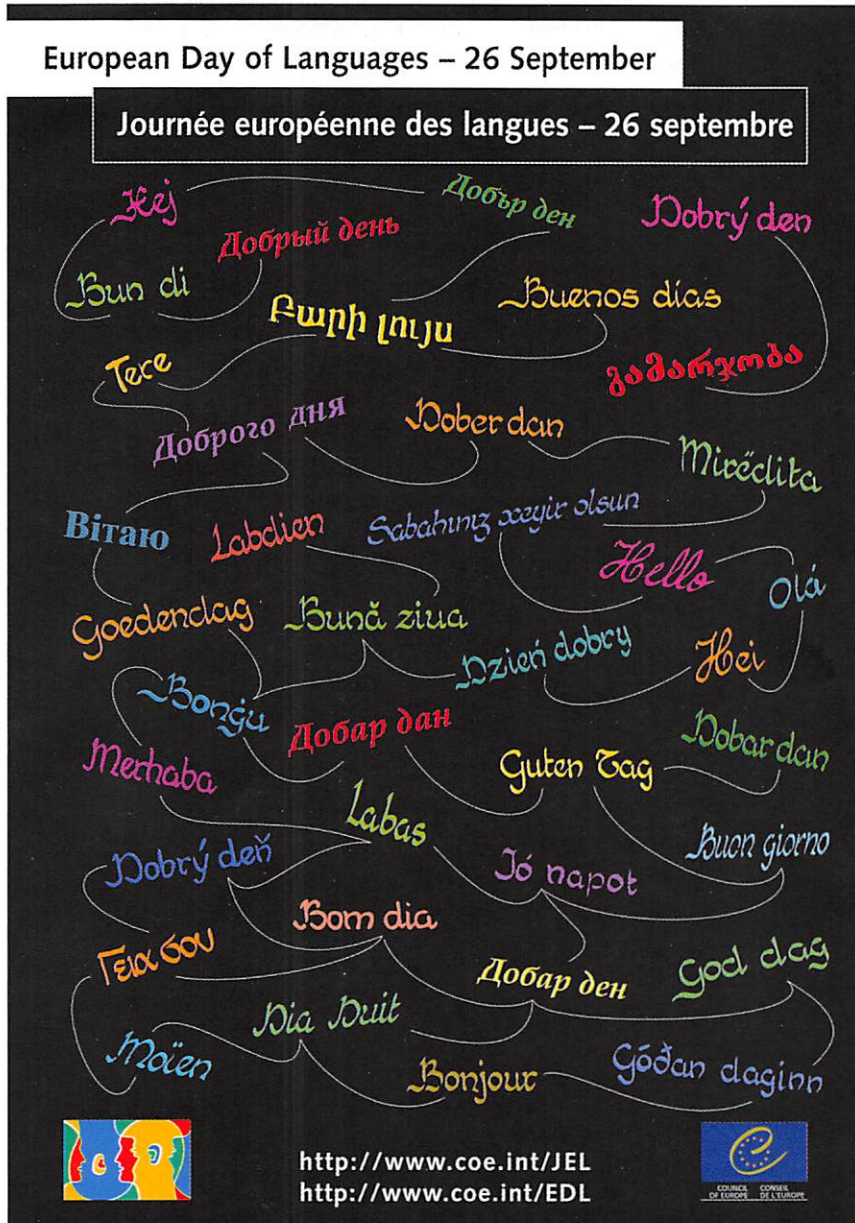 European Day of Languages – 26 September
Journée européenne des langues – 26 septembre
Hej
Добър ден
Dobrý den
Добрый день
Bun di
Buenos días
Բարի լույս
Tere
გამარჯობა
Доброго дня
Dober dan
Mirëdita
Вітаю
Labdien
Sabahınız xeyir olsun
Hello
Olá
Goedendag
Bună ziua
Dzień dobry
Hei
Bonġu
Добар дан
Dobar dan
Merhaba
Guten Tag
Labas
Buon giorno
Dobrý deň
Jó napot
Bom dia
Γεια σου
Добар ден
God dag
Dia Duit
Moïen
Bonjour
Góðan daginn
http://www.coe.int/JEL
http://www.coe.int/EDL
COUNCIL OF EUROPE
CONSEIL DE L'EUROPE